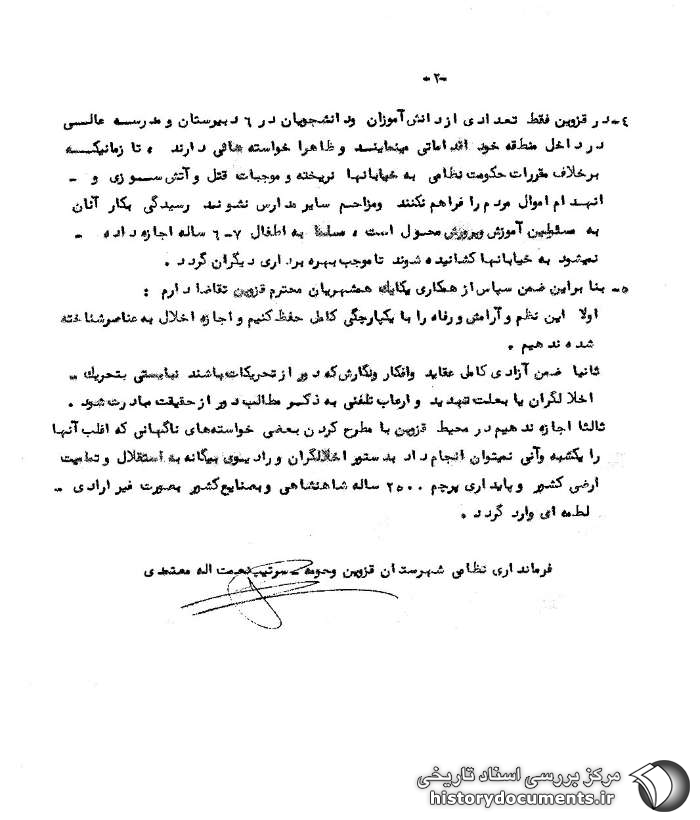 -۲-
۴- در قزوین فقط تعدادی از دانش‌آموزان ودانشجویان در ۶ دبیرستان و مدرسه عالی
در داخل منطقه خود اقداماتی مینمایند و ظاهرا خواسته هائی دارند ، تا زمانیکه
برخلاف مقررات حکومت نظامی به خیابانها نریخته و موجبات قتل و آتش سوزی و -
انهدام اموال مردم را فراهم نکنند ومزاحم سایر مدارس نشوند رسیدگی بکار آنان
به مسئولین آموزش وپرورش محول است ، مسلما به اطفال ۷-۶ ساله اجازه داده -
نمیشود به خیابانها کشانیده شوند تا موجب بهره برداری دیگران گردد .
۵- بنا براین ضمن سپاس از همکاری یکایک همشهریان محترم قزوین تقاضا دارم :
اولا این نظم و آرامش و رفاه را با یکپارچگی کامل حفظ کنیم و اجازه اخلال به عناصر شناخته
شده ندهیم .
ثانیا ضمن آزادی کامل عقاید وافکار ونگارش که دور از تحریکات باشند نبایستی بتحریک -
اخلالگران یا بعلت تهدید و ارعاب تلفنی به ذکر مطالب دور از حقیقت مبادرت شود .
ثالثا اجازه ندهیم در محیط قزوین با مطرح کردن بعضی خواسته‌های ناگهانی که اغلب آنها
را یکشبه وآنی نمیتوان انجام داد بدستور اخلالگران و رادیوی بیگانه به استقلال و تمامیت
ارضی کشور و پایداری پرچم ۲۵۰۰ ساله شاهنشاهی و بصنایع کشور بصورت غیر ارادی -
لطمه ای وارد گردد .
فرمانداری نظامی شهرستان قزوین وحومه - سرتیپ نعمت اله معتمدی
مرکز بررسی اسناد تاریخی
historydocuments.ir